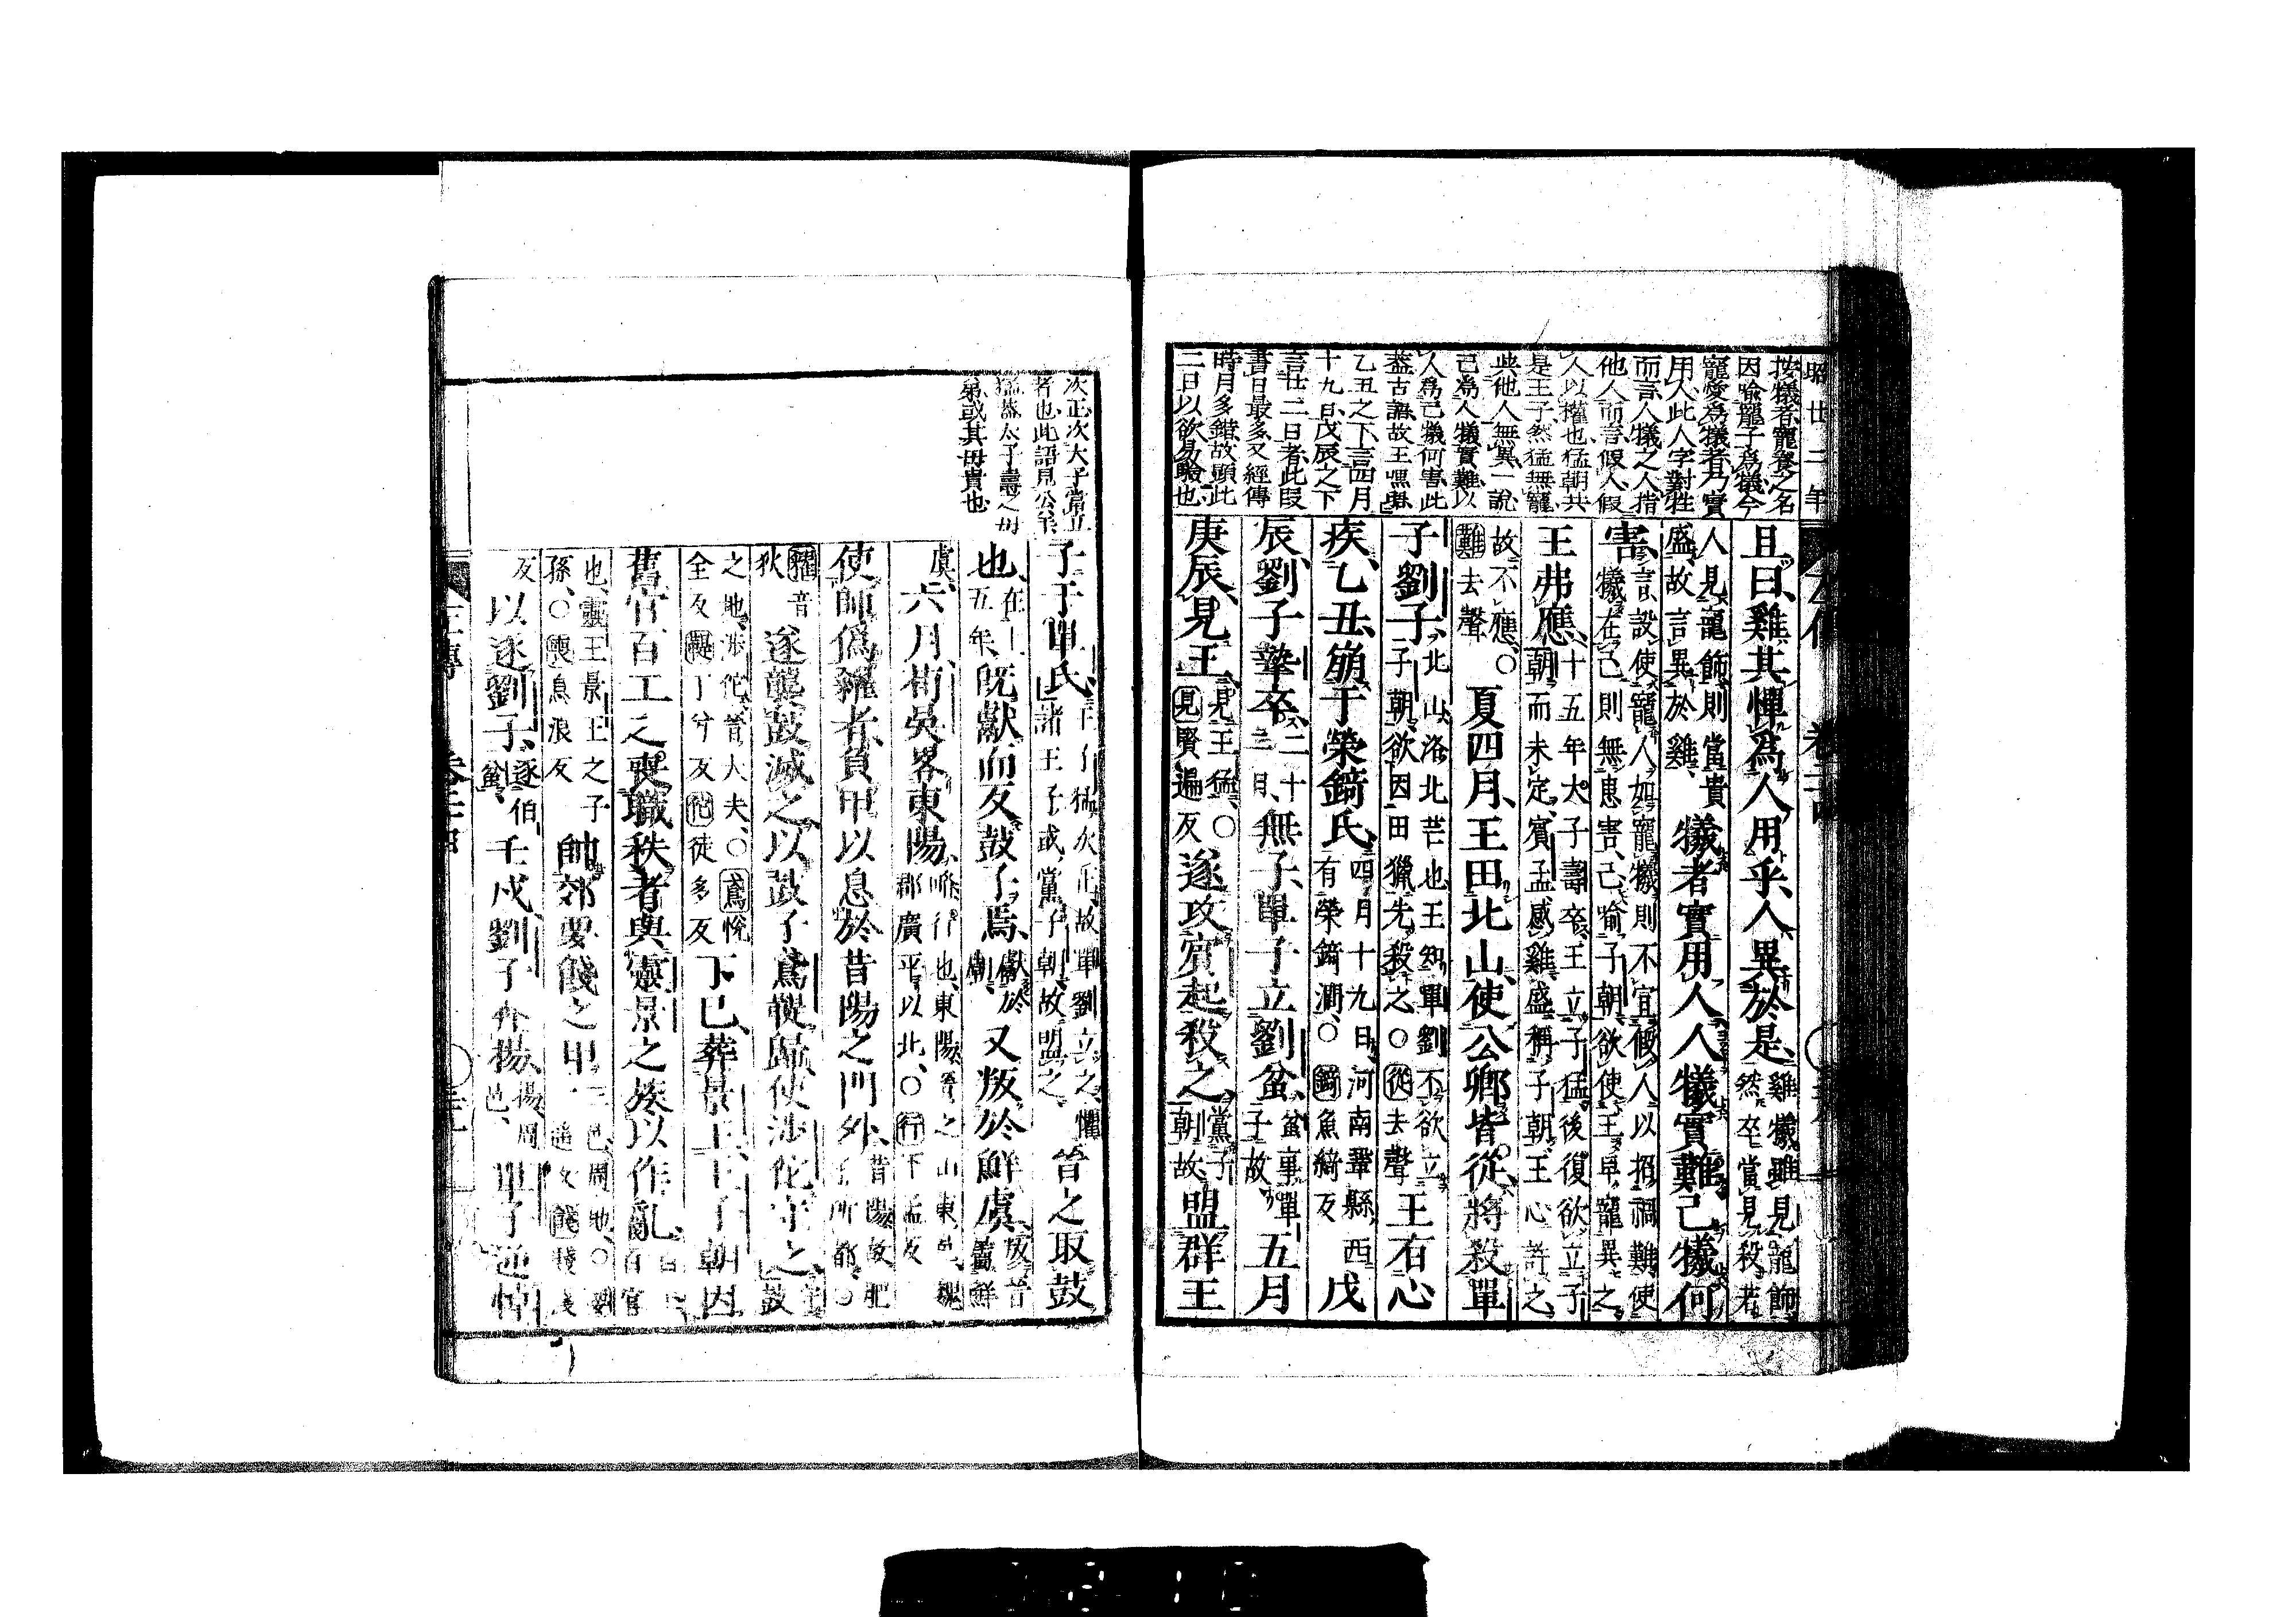 昭廿二年
按犧者寵養之名
因喩寵子爲犧今
寵愛爲犧者乃實
用人此人字對牲
而言人犧之人指
他人而言假人假
人以權也猛朝共
是王子然猛無寵
與他人無異一說
己爲人犧實難以
人爲己犧何害此
蓋古語故王嘿
乙丑之下言四月
十九日戊辰之下
言廿二日者此段
書日最多又經傳
時月多錯故顯此
二日以欲易驗也
且曰雞其憚爲人用乎人異於是雞犧雖見寵飾
然卒當見殺若
人見寵飾則當貴
盛故言異於雞犧者實用人人犧實難己犧何
害言設使寵人如寵犧則不宜假人以招禍難使
犧在己則無患害己喻子朝欲使王早寵異之
王弗應十五年大子壽卒王立子猛後復欲立子
朝而未定賓孟感雞盛稱子朝王心許之
故不應○
難去聲夏四月王田北山使公卿皆從將殺單
子劉子北山洛北芒也王知單劉不欲立
子朝欲因田獵先殺之○從去聲王有心
疾乙丑崩于榮錡氏四月十九日河南鞏縣西
有榮錡澗○錡魚綺反戊
辰劉子摯卒二十
二日無子單子立劉蚠蚠事單
子故五月
庚辰見王見王猛○
見賢遍反遂攻賓起殺之黨子
朝故盟群王
次正次大子當立
者也此語見公羊
猛蓋太子壽之母
弟或其母貴也
子于單氏王子猛次正故單劉立之懼
諸王子或黨子朝故盟之晉之取鼓
也在十
五年既獻而反鼓子焉獻於
廟又叛於鮮虞叛晉
屬鮮
虞六月荀吳畧東陽畧行也東陽晉之山東地魏
郡廣平以北○行下孟反
使師僞糴者負甲以息於昔陽之門外昔陽故肥
子所都○
糴音
狄遂襲鼓滅之以鼓子鳶鞮歸使涉佗守之守
鼓
之地涉佗晉大夫○鳶悅
全反鞮丁兮反佗徒多反丁巳葬景王王子朝因
舊官百工之喪職秩者與靈景之族以作亂百工
百官
也靈王景王之子
孫○喪息浪反帥郊要餞之甲三邑周地○要
遙反餞賤淺
反以逐劉子逐伯
蚠壬戌劉子奔揚揚周
邑單子逆悼